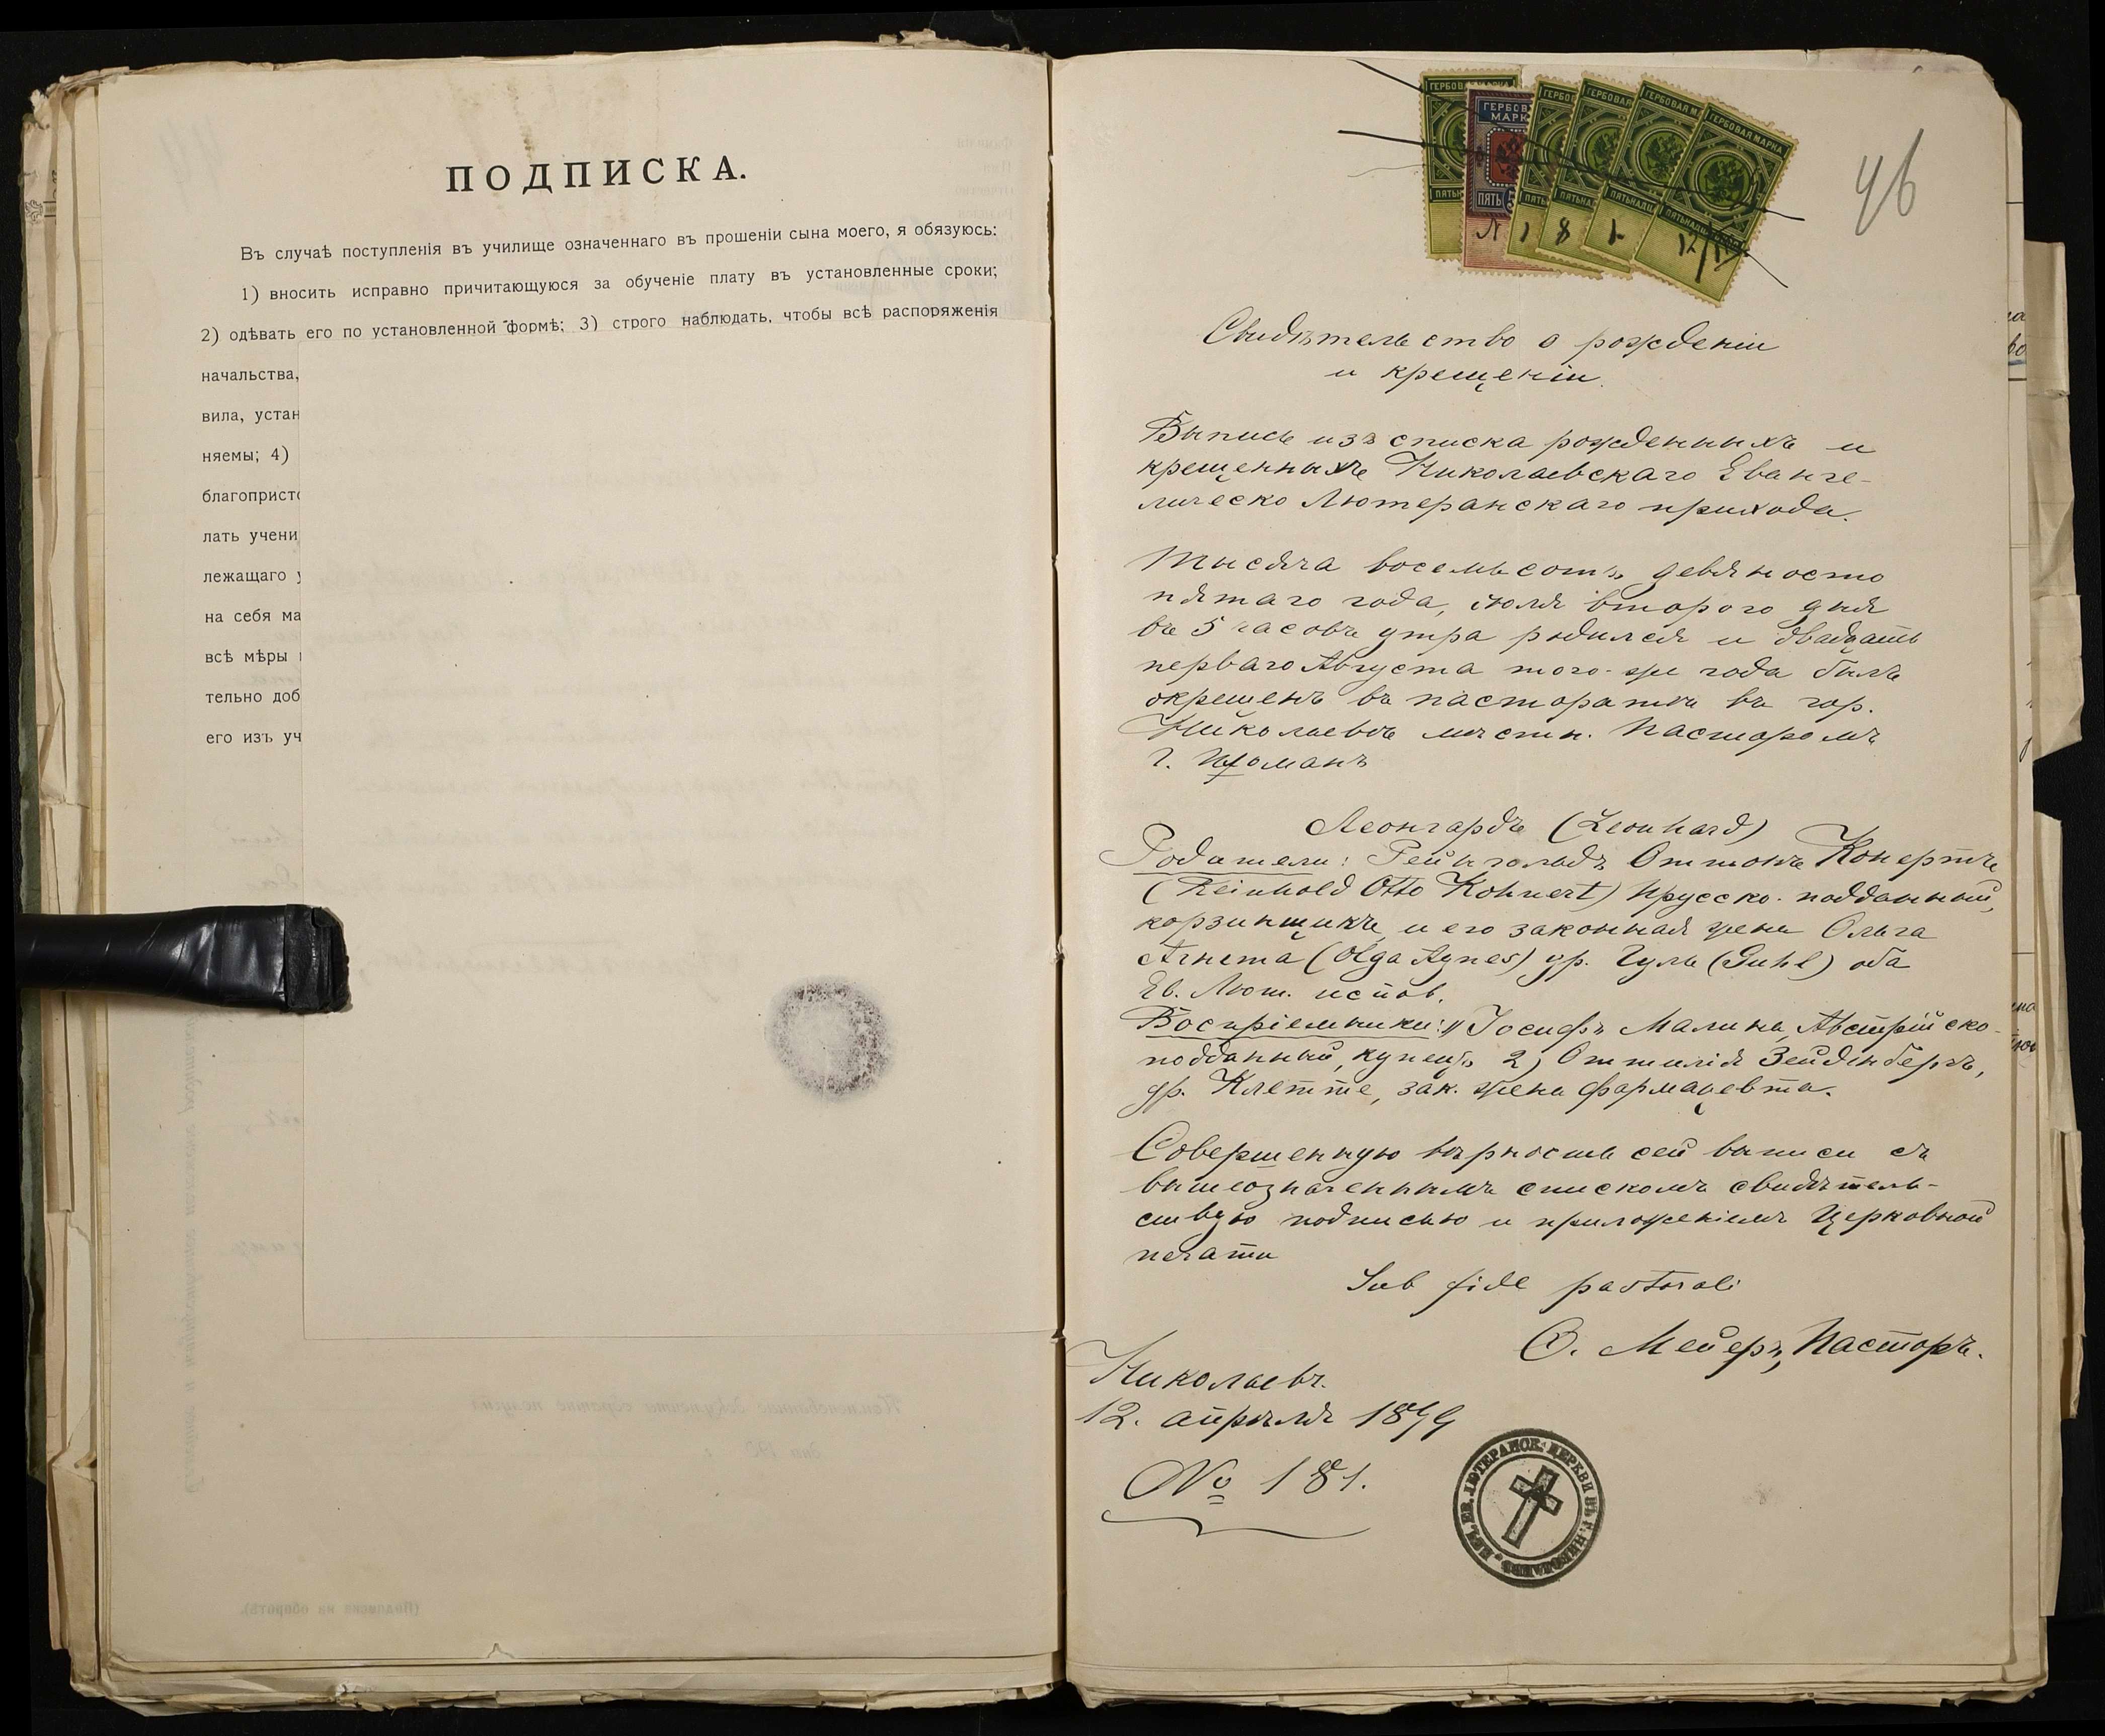 ПОДПИСКА.
Въ случаѣ поступленія въ училище означеннаго въ прошеніи сына моего, я обязуюсь:
1) вносить исправно причитающуюся за обученіе плату въ установленные сроки;
2) одѣвать его по установленной формѣ; 3) строго наблюдать, чтобы всѣ распоряженія
начальства,
вила, устан
няемы; 4)
благопристо
лать учени
лежащаго у
на себя ма
всѣ мѣры
тельно доб
его изъ уч
ГЕРБОВАЯ МАРКА
ГЕРБОВ
МАРК
ПЯТЬ
ГЕРБОВАЯ М
ГЕРБОВАЯ МАРКА
46
Свидѣтельство о рожденіи
и крещеніи.
Выпись изъ списка рожденныхъ и
крещенныхъ Николаевскаго Еванге-
лическо Лютеранскаго прихода.
Тысяча восемьсотъ девяносто
пятаго года, іюля второго дня
въ 5 часовъ утра родился и двадцать
перваго Августа того-же года былъ
окрещенъ въ пасторатѣ въ гор.
Николаевѣ мѣстн. Пасторомъ
Г. Штоманъ
Леонгардъ (Leonhard)
Родители: Рейнгольдъ Оттонъ Конертъ
(Reinhold Otto Kohnert) Прусско. подданный,
корзинщикъ, и его законная жена Ольга
Агнета (Olga Agnes) ур. Гуль (Guhl) оба
Ев. Лют. испов.
Воспріемники: 1) Іосифъ Малина, Австрійско-
подданный, купецъ 2) Оттилія Зейдінберъ,
ур. Клетте, зак. жена фармацевта.
Совершенную вѣрность сей выписи съ
вышеозначеннымъ спискомъ свидѣтель-
ствую подписью и приложеніемъ Церковной
печати
Sub fide pastorali
О. Мейеръ, Пасторъ.
Николаевъ.
12. апрѣля 1899
№ 181.
ЕВ. ЛЮТЕРАНСК. ЦЕРКВИ ВЪ Г. НИКОЛАЕВѢ
(Подписка на оборотѣ).